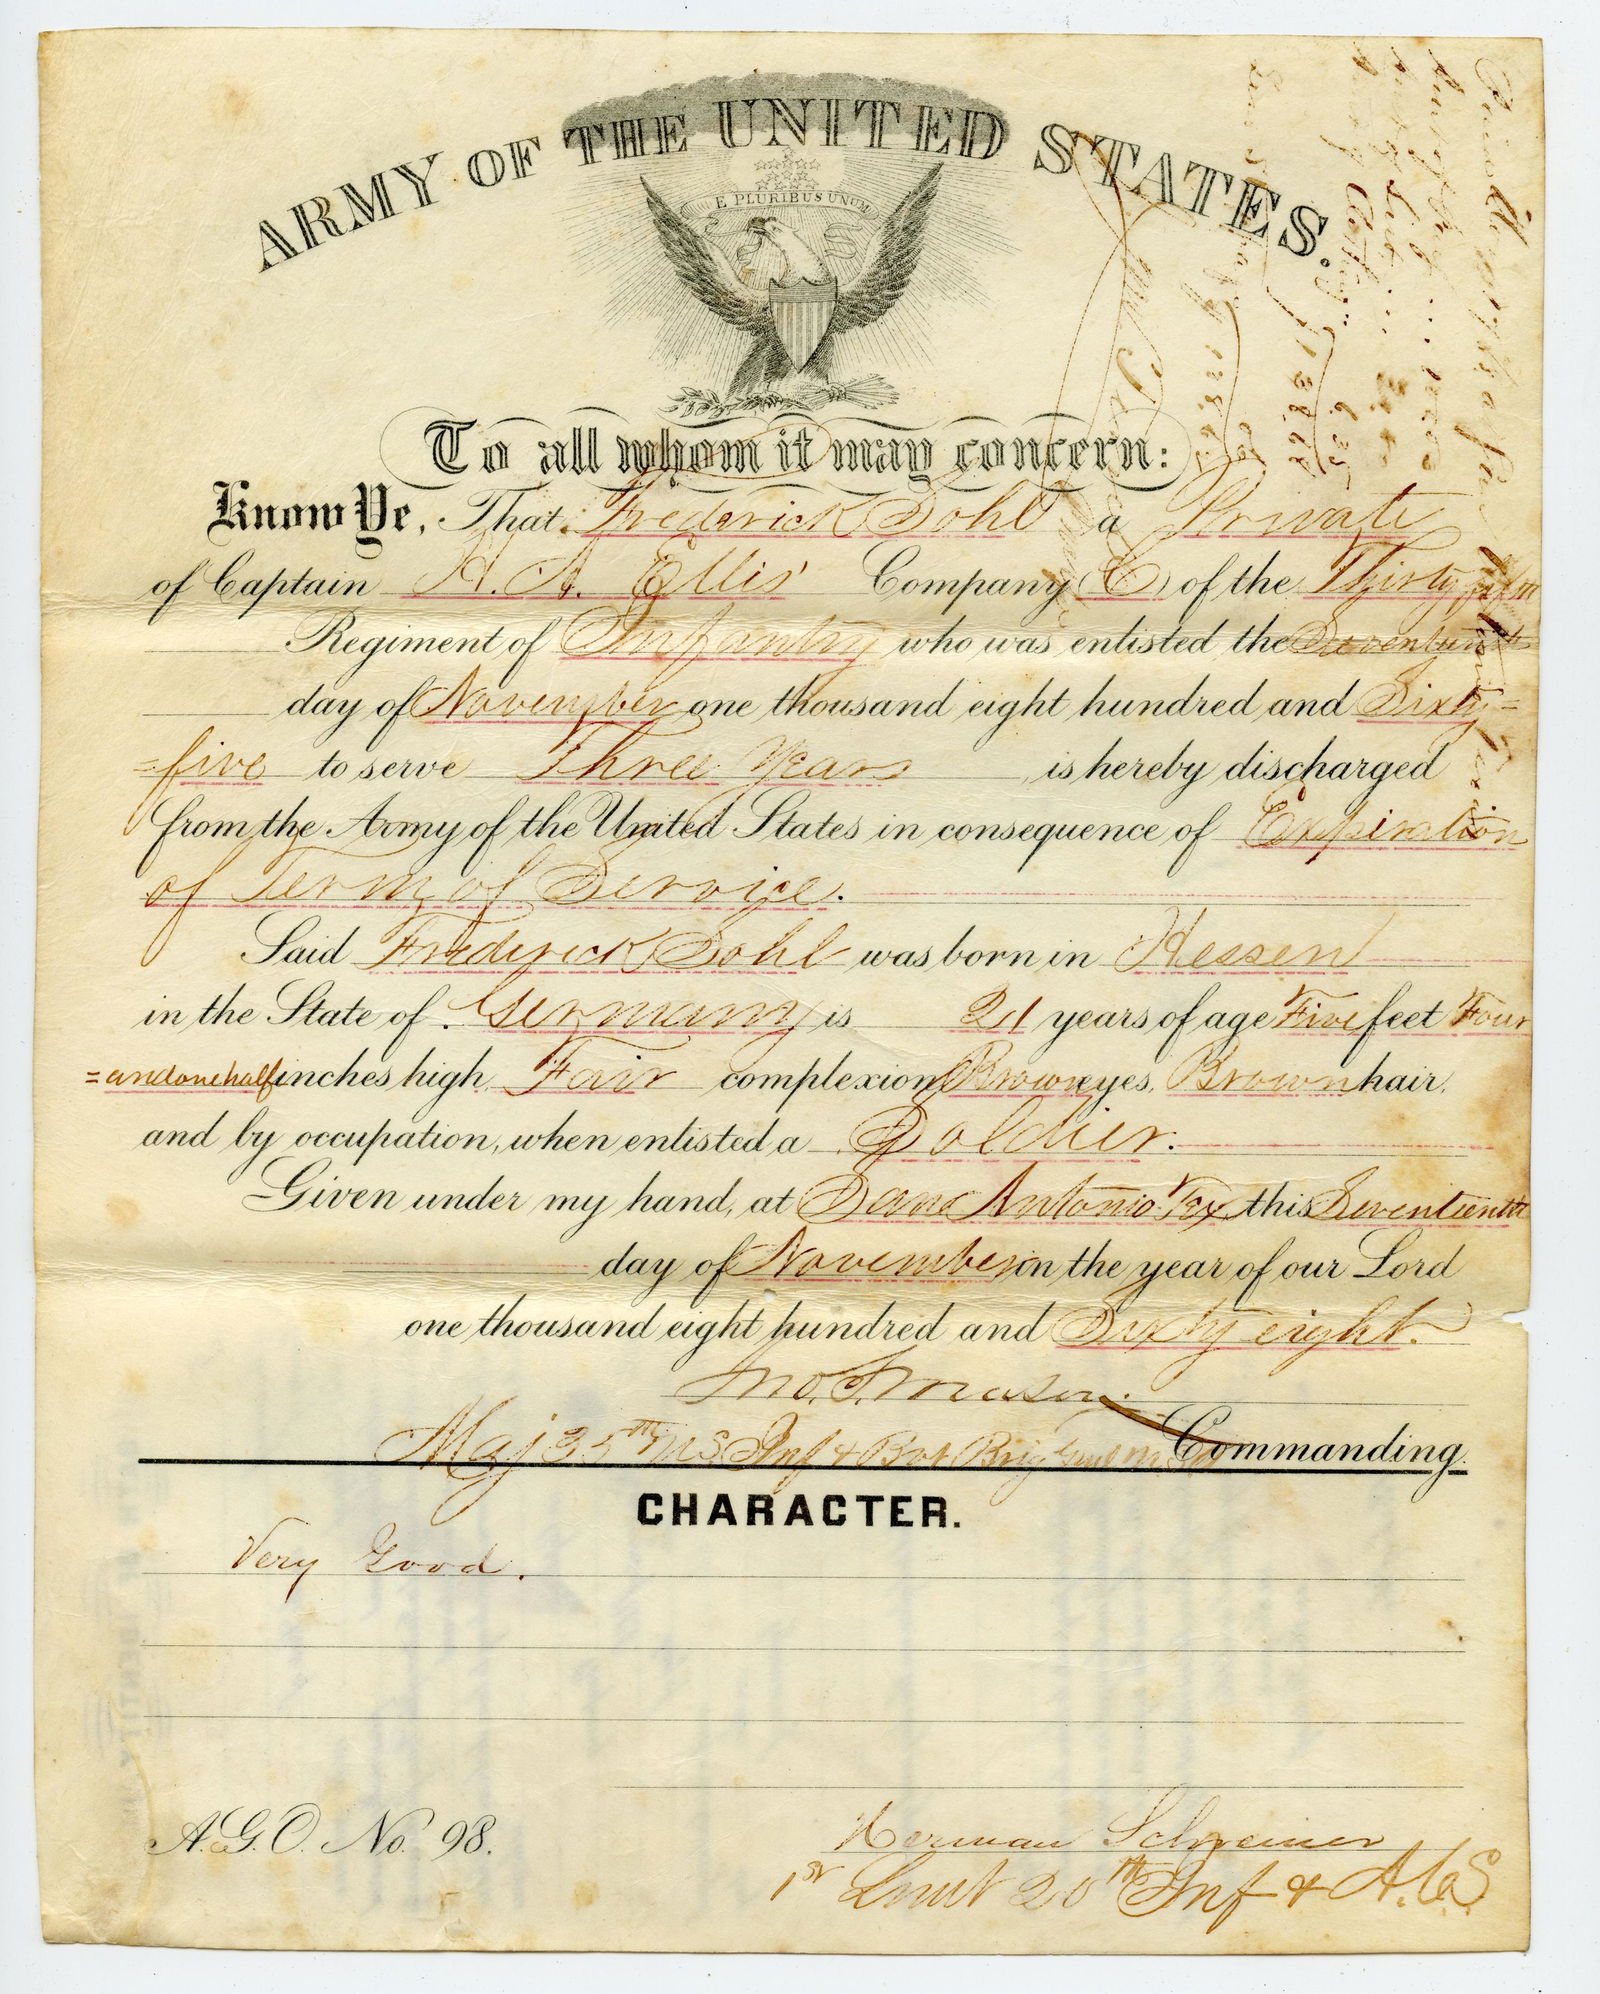 ARMY OF THE UNITED STATES.
E PLURIBUS UNUM
To all whom it may concern:
Know Ye, That Frederick Sohl a Private
of Captain H. A. Ellis' Company (C) of the Thirty fifth
Regiment of Infantry who was enlisted the Seventeenth
day of November one thousand eight hundred and Sixty=
=five to serve Three Years is hereby discharged
from the Army of the United States in consequence of Expiration
of Term of Service.
Said Frederick Sohl was born in Hessen
in the State of Germany is 21 years of age Five feet Four
=and one half inches high, Fair complexion, Brown eyes, Brown hair,
and by occupation, when enlisted a Soldier.
Given under my hand, at San Antonio Tex this Seventeenth
day of November in the year of our Lord
one thousand eight hundred and Sixty eight.
Jno. S. Mason
Maj 35th U S Inf & Bvt Brig Genl U.S.A. Commanding.
CHARACTER.
Very Good.
A.G.O. No. 98.
Herman Schreiner
1st Lieut 20th Inf & A.C.S.